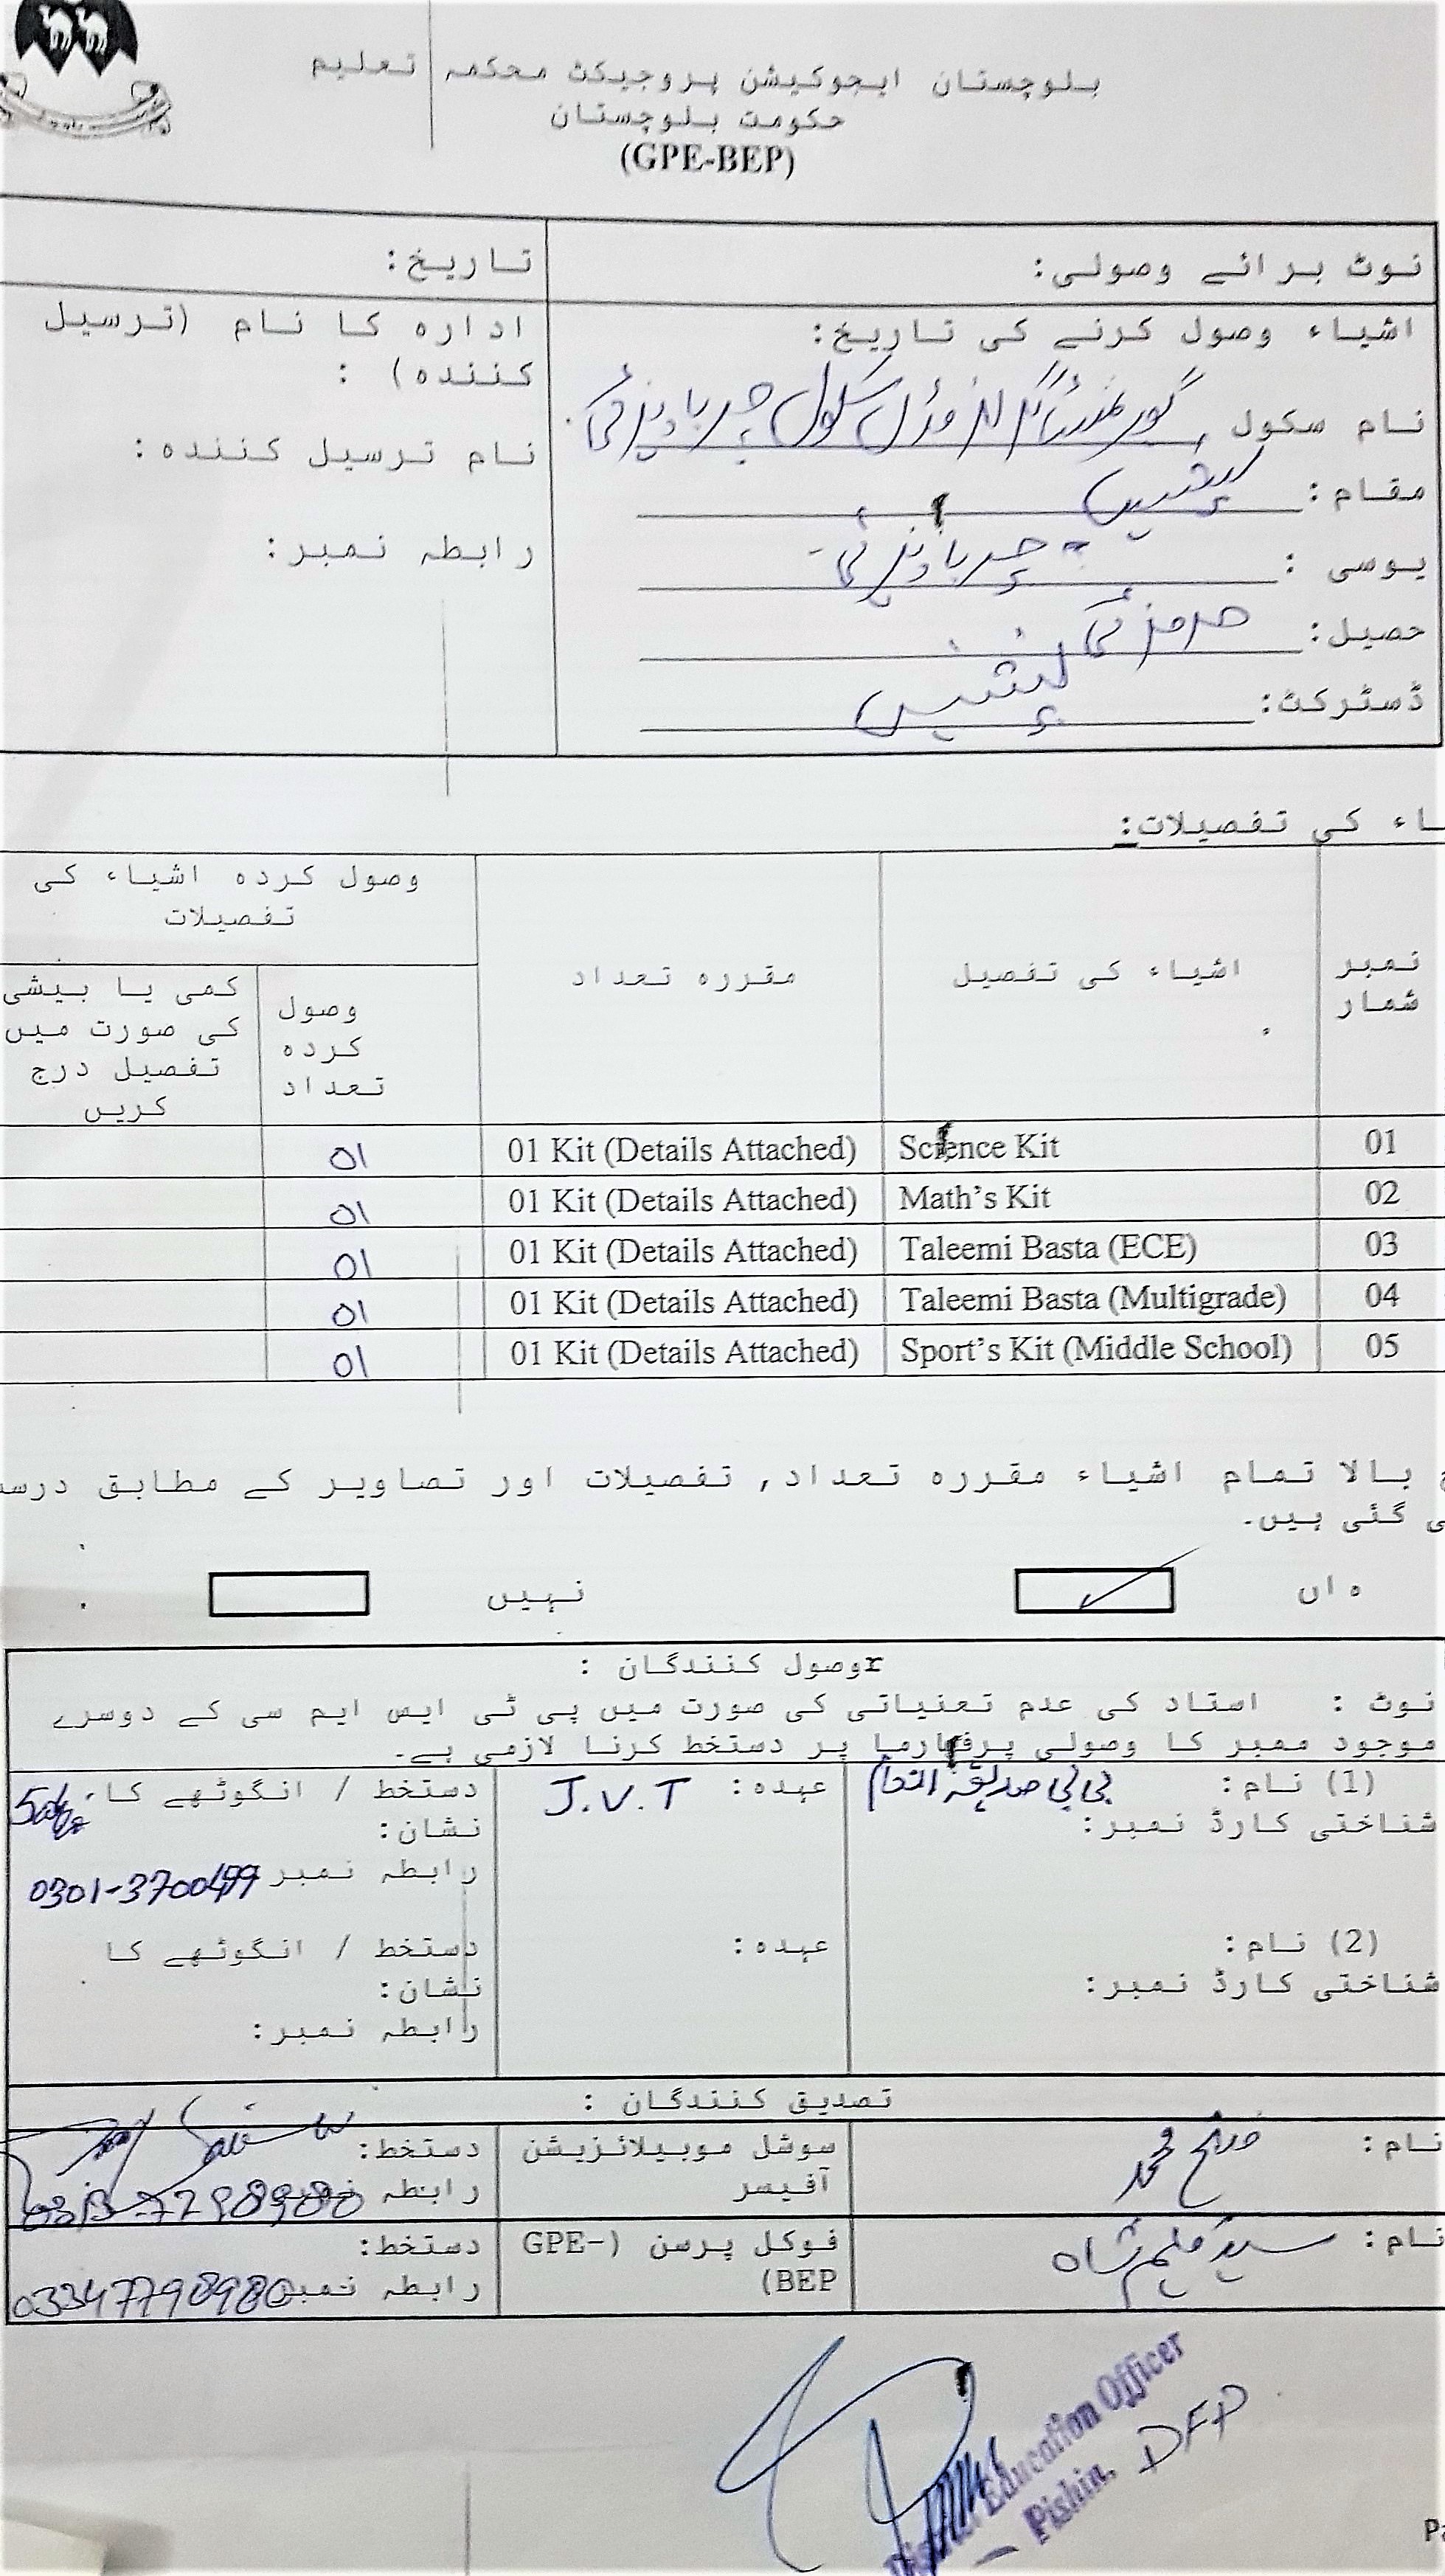 بلوچستان ایجوکیشن پروجیکٹ محکمہ تعلیم
حکومت بلوچستان
(GPE-BEP)
نوٹ برائے وصولی:
اشیاء وصول کرنے کی تاریخ:
نام سکول گورنمنٹ گرلز مڈل سکول
مقام: پشین
یوسی :
حصیل: حرمزئی
ڈسٹرکٹ: پشین
تاریخ:
ادارہ کا نام (ترسیل
کنندہ) :
نام ترسیل کنندہ:
رابطہ نمبر:
اء کی تفصیلات:
نمبر شمار
اشیاء کی تفصیل
مقررہ تعداد
وصول کردہ اشیاء کی تفصیلات
وصول کردہ تعداد
کمی یا بیشی کی صورت میں تفصیل درج کریں
01 Science Kit 01 Kit (Details Attached) 01
02 Math's Kit 01 Kit (Details Attached) 01
03 Taleemi Basta (ECE) 01 Kit (Details Attached) 01
04 Taleemi Basta (Multigrade) 01 Kit (Details Attached) 01
05 Sport's Kit (Middle School) 01 Kit (Details Attached) 01
بالا تمام اشیاء مقررہ تعداد, تفصیلات اور تصاویر کے مطابق درس
ی گئی ہیں۔
ہاں
نہیں
rوصول کنندگان :
نوٹ : استاد کی عدم تعنیاتی کی صورت میں پی ٹی ایس ایم سی کے دوسرے
موجود ممبر کا وصولی پرفارما پر دستخط کرنا لازمی ہے۔
(1) نام: بی بی صدیقہ
شناختی کارڈ نمبر:
عہدہ: J.V.T
دستخط / انگوٹھے کا
نشان:
رابطہ نمبر 0301-3700499
(2) نام:
شناختی کارڈ نمبر:
عہدہ:
دستخط / انگوٹھے کا
نشان:
رابطہ نمبر:
تصدیق کنندگان :
نام: محمد
سوشل موبیلائزیشن
آفیسر
دستخط:
رابطہ نمبر
نام: سید شاہ
فوکل پرسن (GPE-
BEP)
دستخط:
رابطہ نمبر 03347798980
Education Officer
Pishin. DFP
Pa